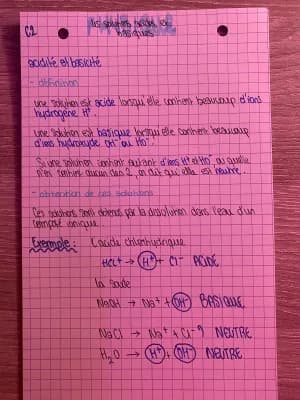 C2
les solutions acides et basiques
acidité et basicité
- définition
une solution est acide lorsqu'elle contient beaucoup d'ions
hydrogène H⁺.
une solution est basique lorsqu'elle contient beaucoup
d'ions hydroxyde OH⁻ ou HO⁻.
Si une solution contient autant d'ions H⁺ et HO⁻ ou qu'elle
n'en contient aucun des 2, on dit qu'elle est neutre.
- obtention de ces solutions
Ces solutions sont obtenues par la dissolution dans l'eau d'un
composé ionique.
Exemple : L'acide chlorhydrique
HCl → H⁺ + Cl⁻ ACIDE
la soude
NaOH → Na⁺ + OH⁻ BASIQUE
NaCl → Na⁺ + Cl⁻ NEUTRE
H₂O → H⁺ + OH⁻ NEUTRE